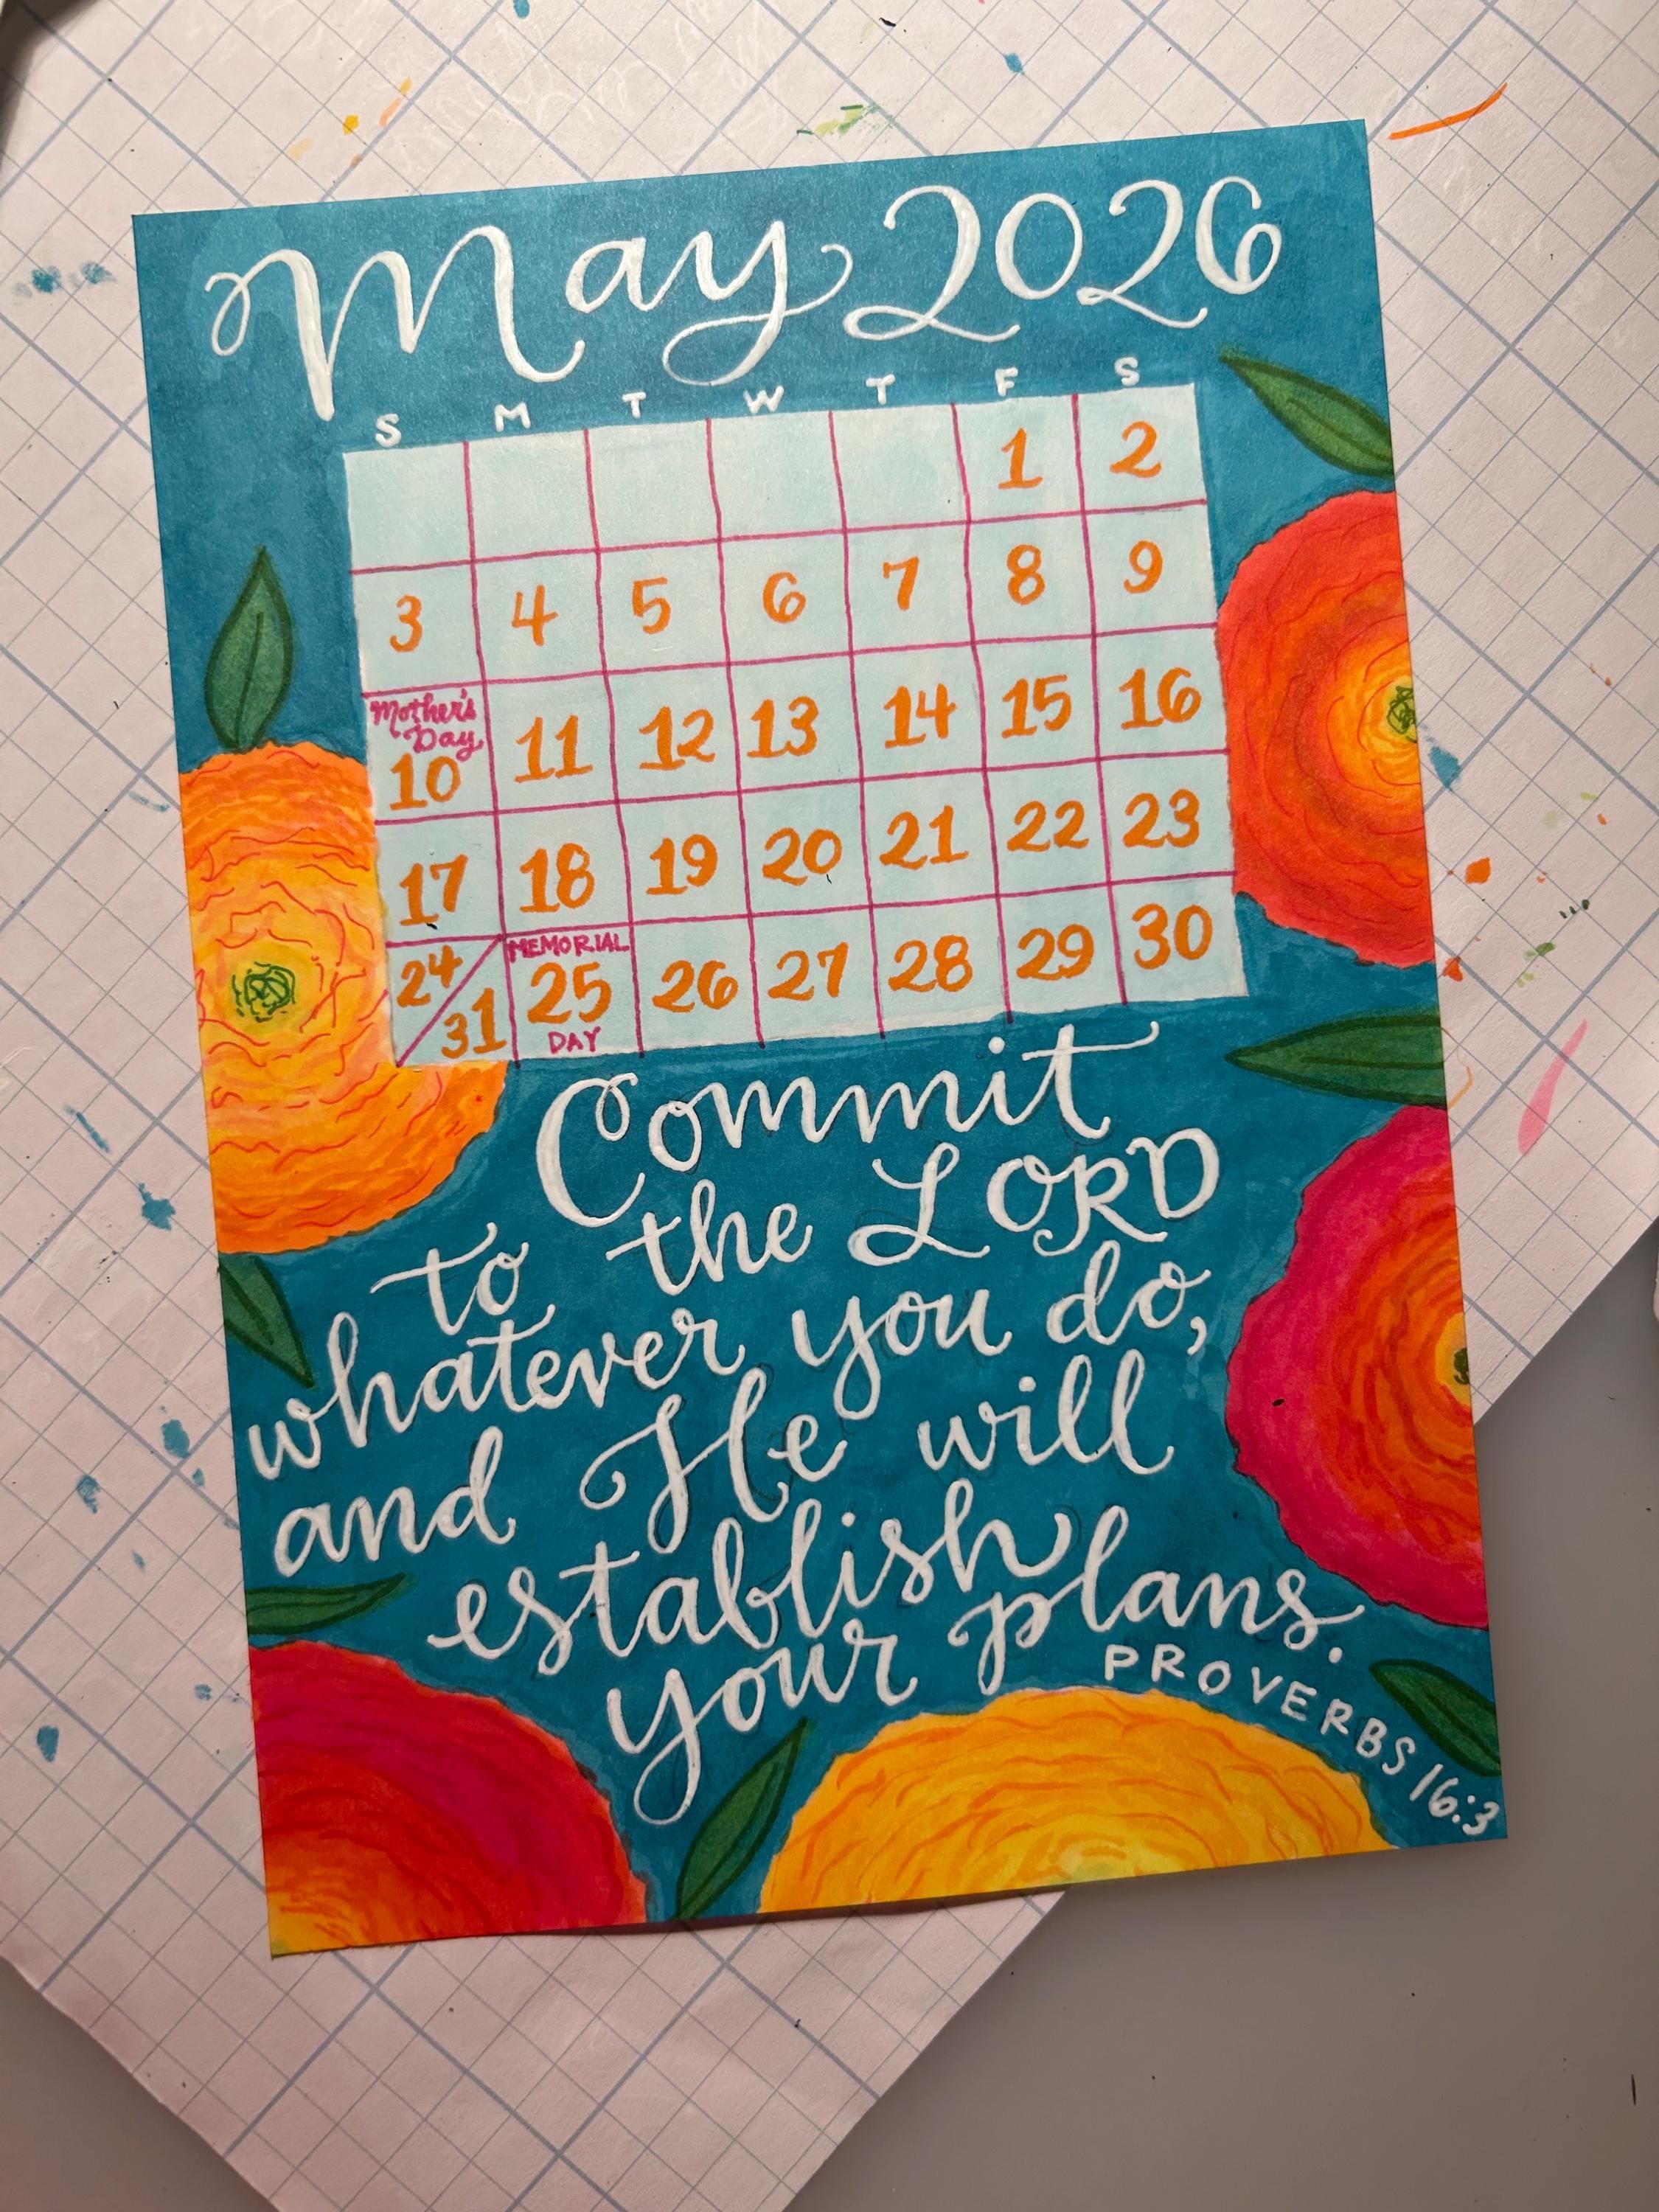 May 2026
S M T W T F S
1 2
3 4 5 6 7 8 9
Mother's
Day
10 11 12 13 14 15 16
17 18 19 20 21 22 23
MEMORIAL
24 25 26 27 28 29 30
31 DAY
Commit
to the LORD
whatever you do,
and He will
establish
your plans.
PROVERBS 16:3